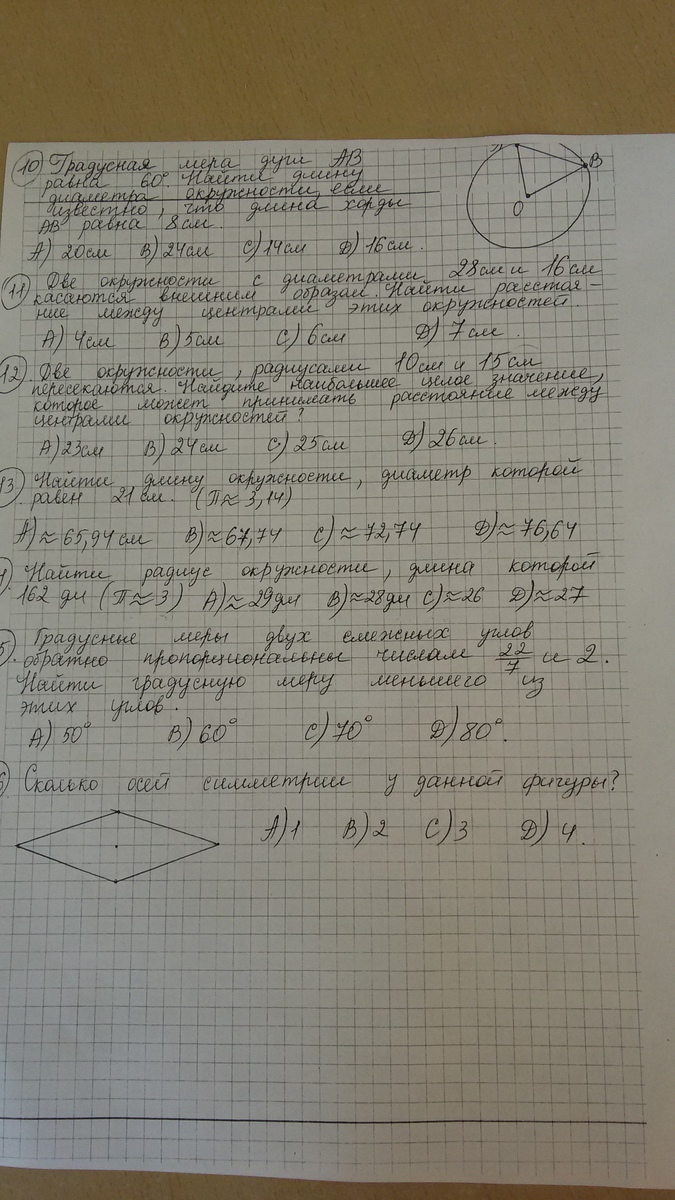 10 Градусная мера дуги АВ
равна 60°. Найти длину
диаметра окружности, если
известно, что длина хорды
АВ равна 8 см.
В
О
А) 20см В) 24см С) 14см D) 16см.
11 Две окружности с диаметрами 28см и 16см
касаются внешним образом. Найти расстоя-
ние между центрами этих окружностей.
А) 4см В) 5см С) 6см D) 7см.
12. Две окружности, радиусами 10см и 15см
пересекаются. Найдите наибольшее целое значение,
которое может принимать расстояние между
центрами окружностей?
А) 23см В) 24см С) 25см D) 26см.
13 Найти длину окружности, диаметр которой
равен 21 см. (П≈3,14)
А) ≈65,94см В) ≈67,74 С) ≈72,74 D) ≈76,64
Найти радиус окружности, длина которой
162 дм (П≈3) А) ≈29дм В) ≈28дм С) ≈26 D) ≈27
5 Градусные меры двух смежных углов
обратно пропорциональны числам 22/7 и 2.
Найти градусную меру меньшего из
этих углов.
А) 50° В) 60° С) 70° D) 80°.
6) Сколько осей симметрии у данной фигуры?
А) 1 В) 2 С) 3 D) 4.